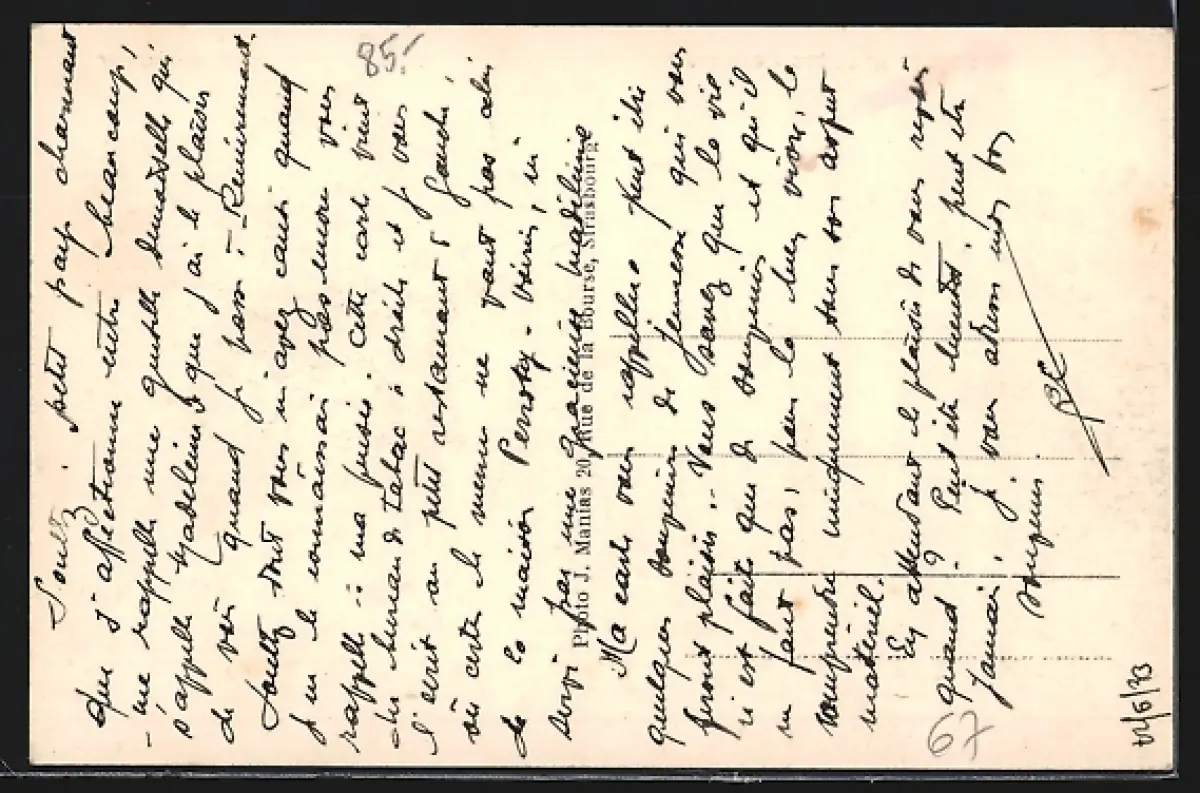 Soultz, petit pays charmant
que j'affectionne entre beaucoup,
me rappelle une gentille demoiselle qui
s'appelle Madeleine et que j'ai le plaisir
de voir quand je passe à Remiremont.
Soultz dont vous m'avez causé quand
je ne le connaissais pas encore vous
rappelle à ma pensée. Cette carte vient
du bureau de tabac à droite et je vous
l'écris au petit restaurant à gauche
où certes le menu ne vaut pas celui
de la maison
servi par une gracieuse Madeleine
Photo J. Manias 20, Rue de la Bourse, Strasbourg
Ma carte vous rappellera peut être
quelques souvenirs de jeunesse qui vous
feront plaisir. Vous savez que la vie
n'est faite que de souvenirs et qu'il
ne faut pas, pour la bien vivre, la
comprendre uniquement sous son aspect
matériel.
En attendant le plaisir de vous revoir
quand? Peut être bientôt, peut être
jamais, je vous adresse mes bons
souvenirs.
85.-
67